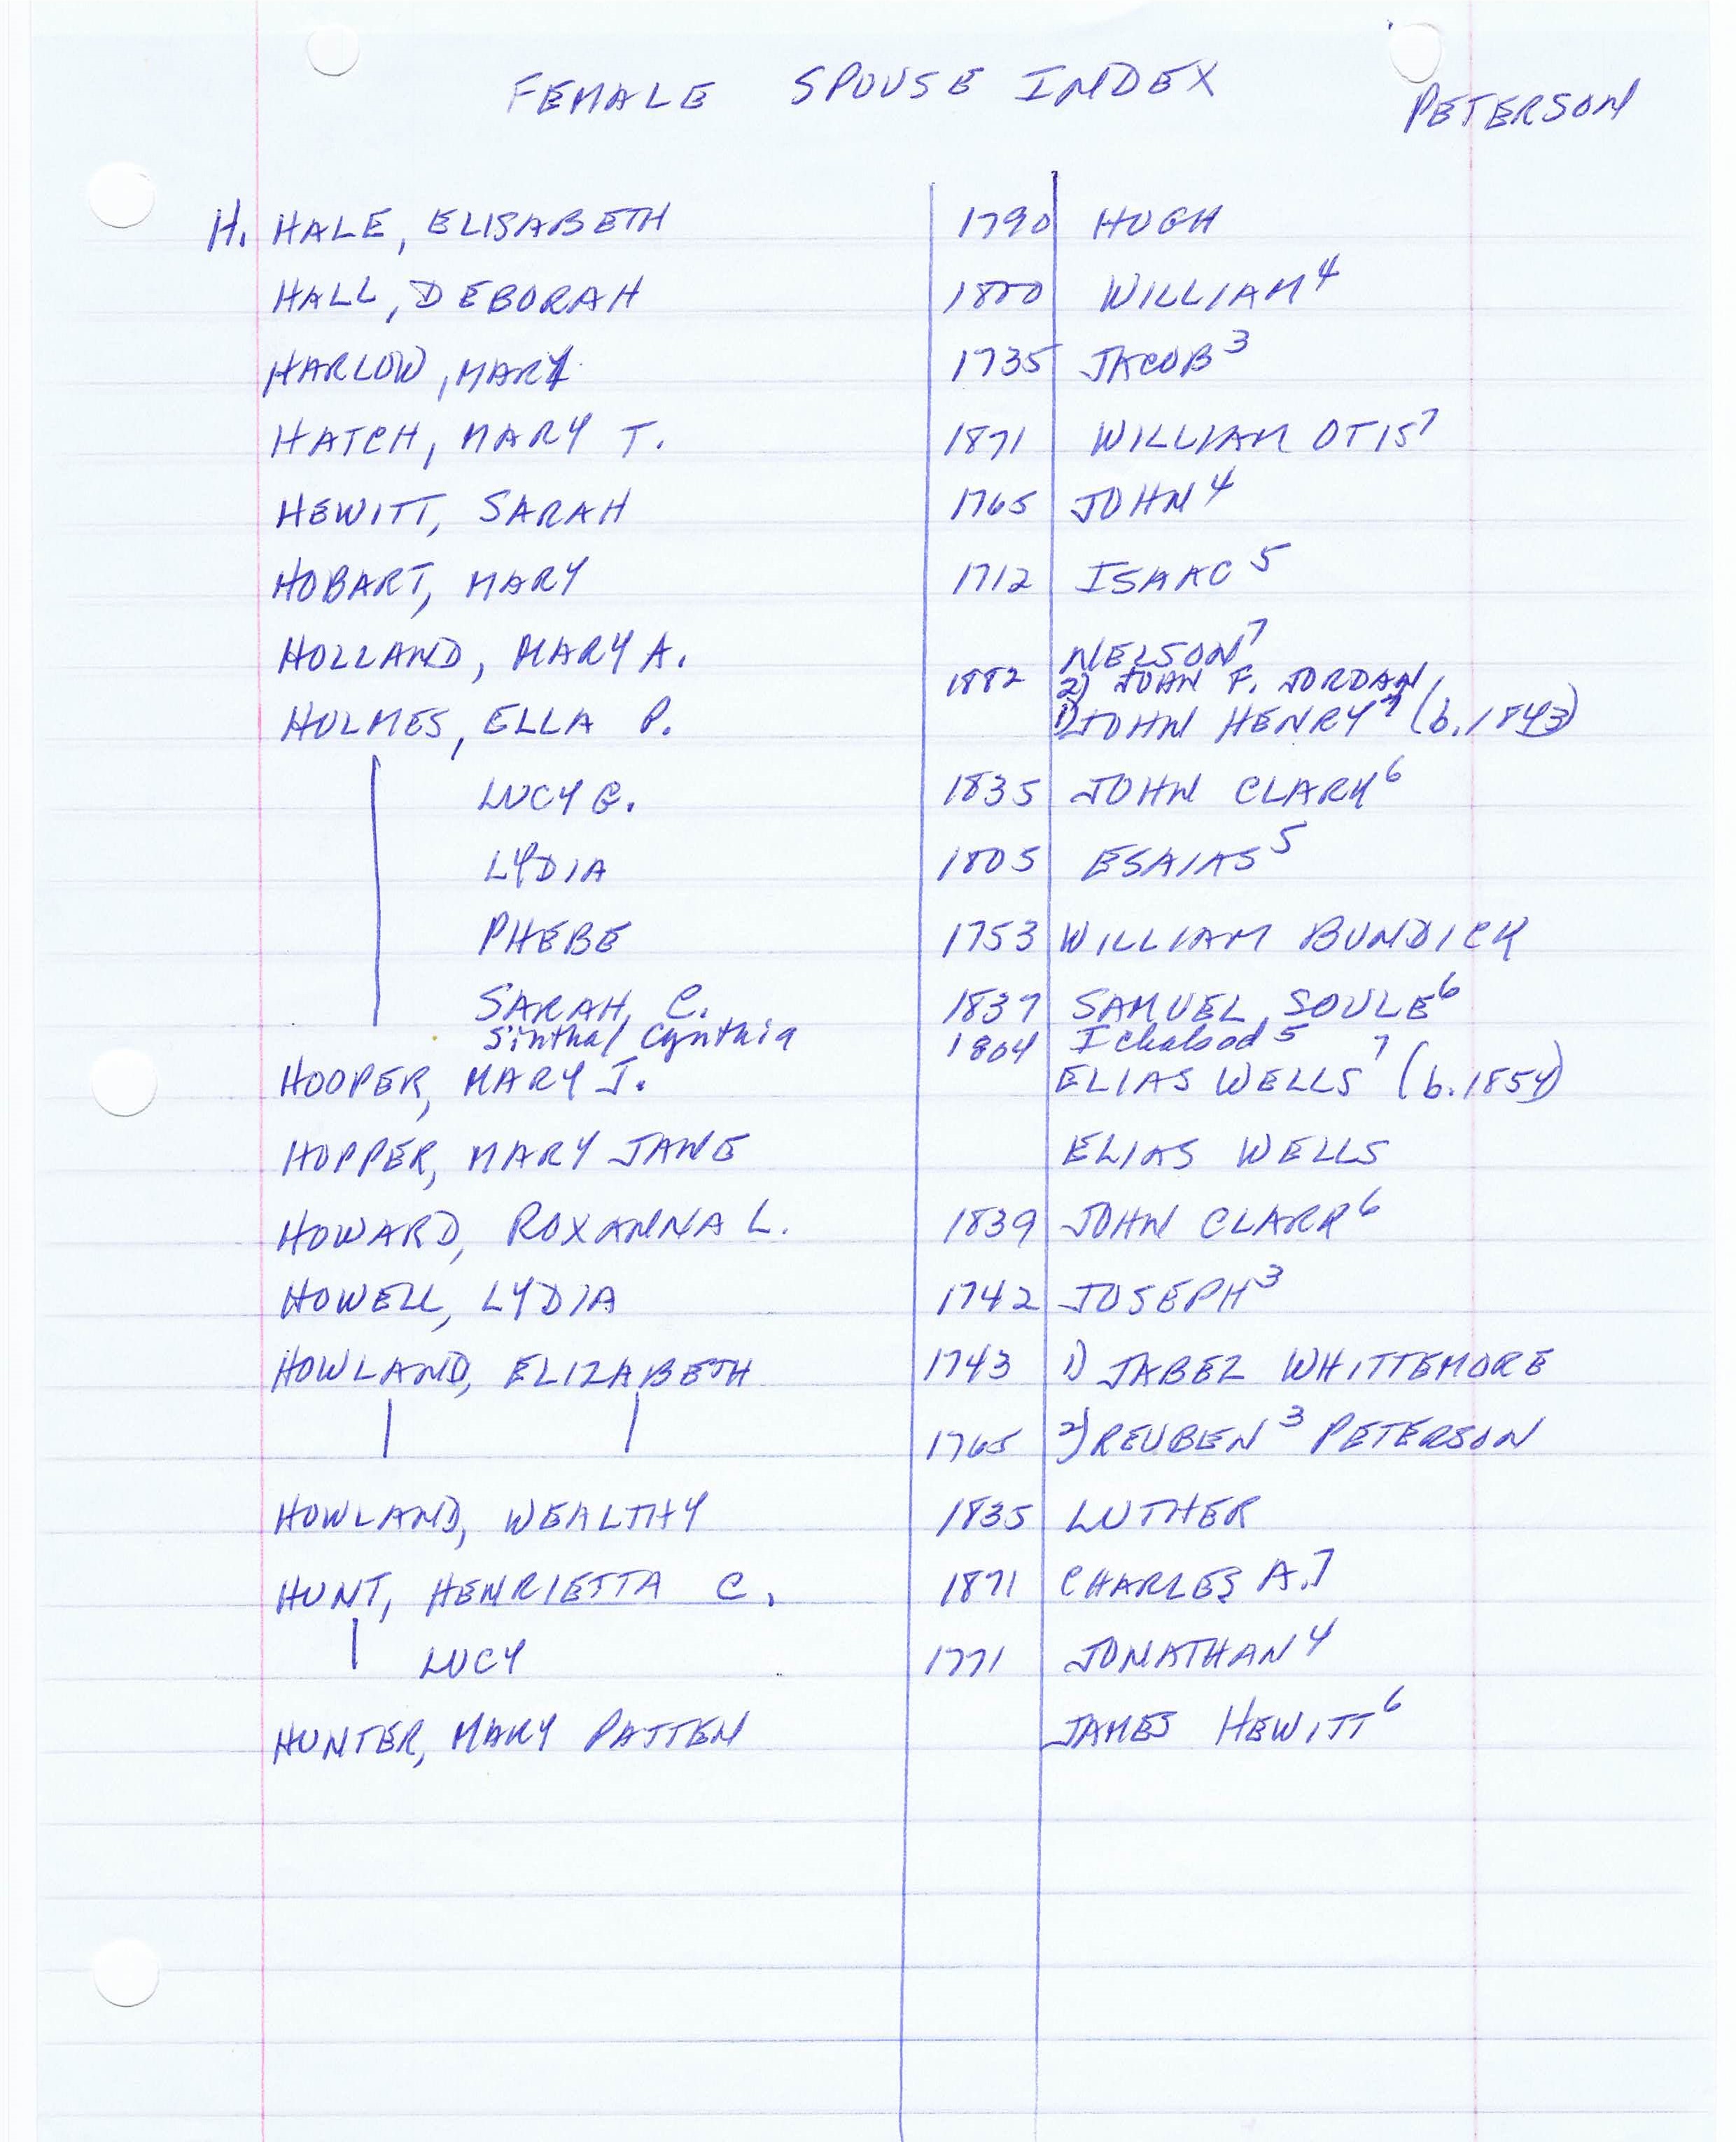 FEMALE SPOUSE INDEX
PETERSON
H. HALE, ELISABETH 1790 HUGH
HALL, DEBORAH 1800 WILLIAM⁴
HARLOW, MARY 1735 JACOB³
HATCH, MARY T. 1871 WILLIAM OTIS⁷
HEWITT, SARAH 1765 JOHN⁴
HOBART, MARY 1712 ISAAC⁵
HOLLAND, MARY A. NELSON⁷
1882 2) JOHN F. JORDAN
HOLMES, ELLA P. 1) JOHN HENRY⁷ (b. 1843)
LUCY G. 1835 JOHN CLARK⁶
LYDIA 1805 ESAIAS⁵
PHEBE 1753 WILLIAM BUNDICK
SARAH C. 1837 SAMUEL SOULE⁶
Sintha/Cynthia 1804 Ichabod⁵
HOOPER, MARY J. ELIAS WELLS⁷ (b. 1854)
HOPPER, MARY JANE ELIAS WELLS
HOWARD, ROXANNA L. 1839 JOHN CLARK⁶
HOWELL, LYDIA 1742 JOSEPH³
HOWLAND, ELIZABETH 1743 1) JABEZ WHITTEMORE
1765 2) REUBEN³ PETERSON
HOWLAND, WEALTHY 1835 LUTHER
HUNT, HENRIETTA C. 1871 CHARLES A.⁷
LUCY 1771 JONATHAN⁴
HUNTER, MARY PATTEN JAMES HEWITT⁶